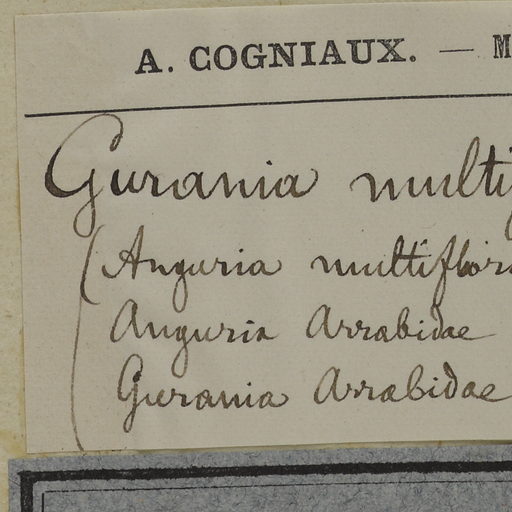 A. COGNIAUX. — M
Gurania multif
(Anguria multiflor
Anguria Arrabidae
Gurania Arrabidae